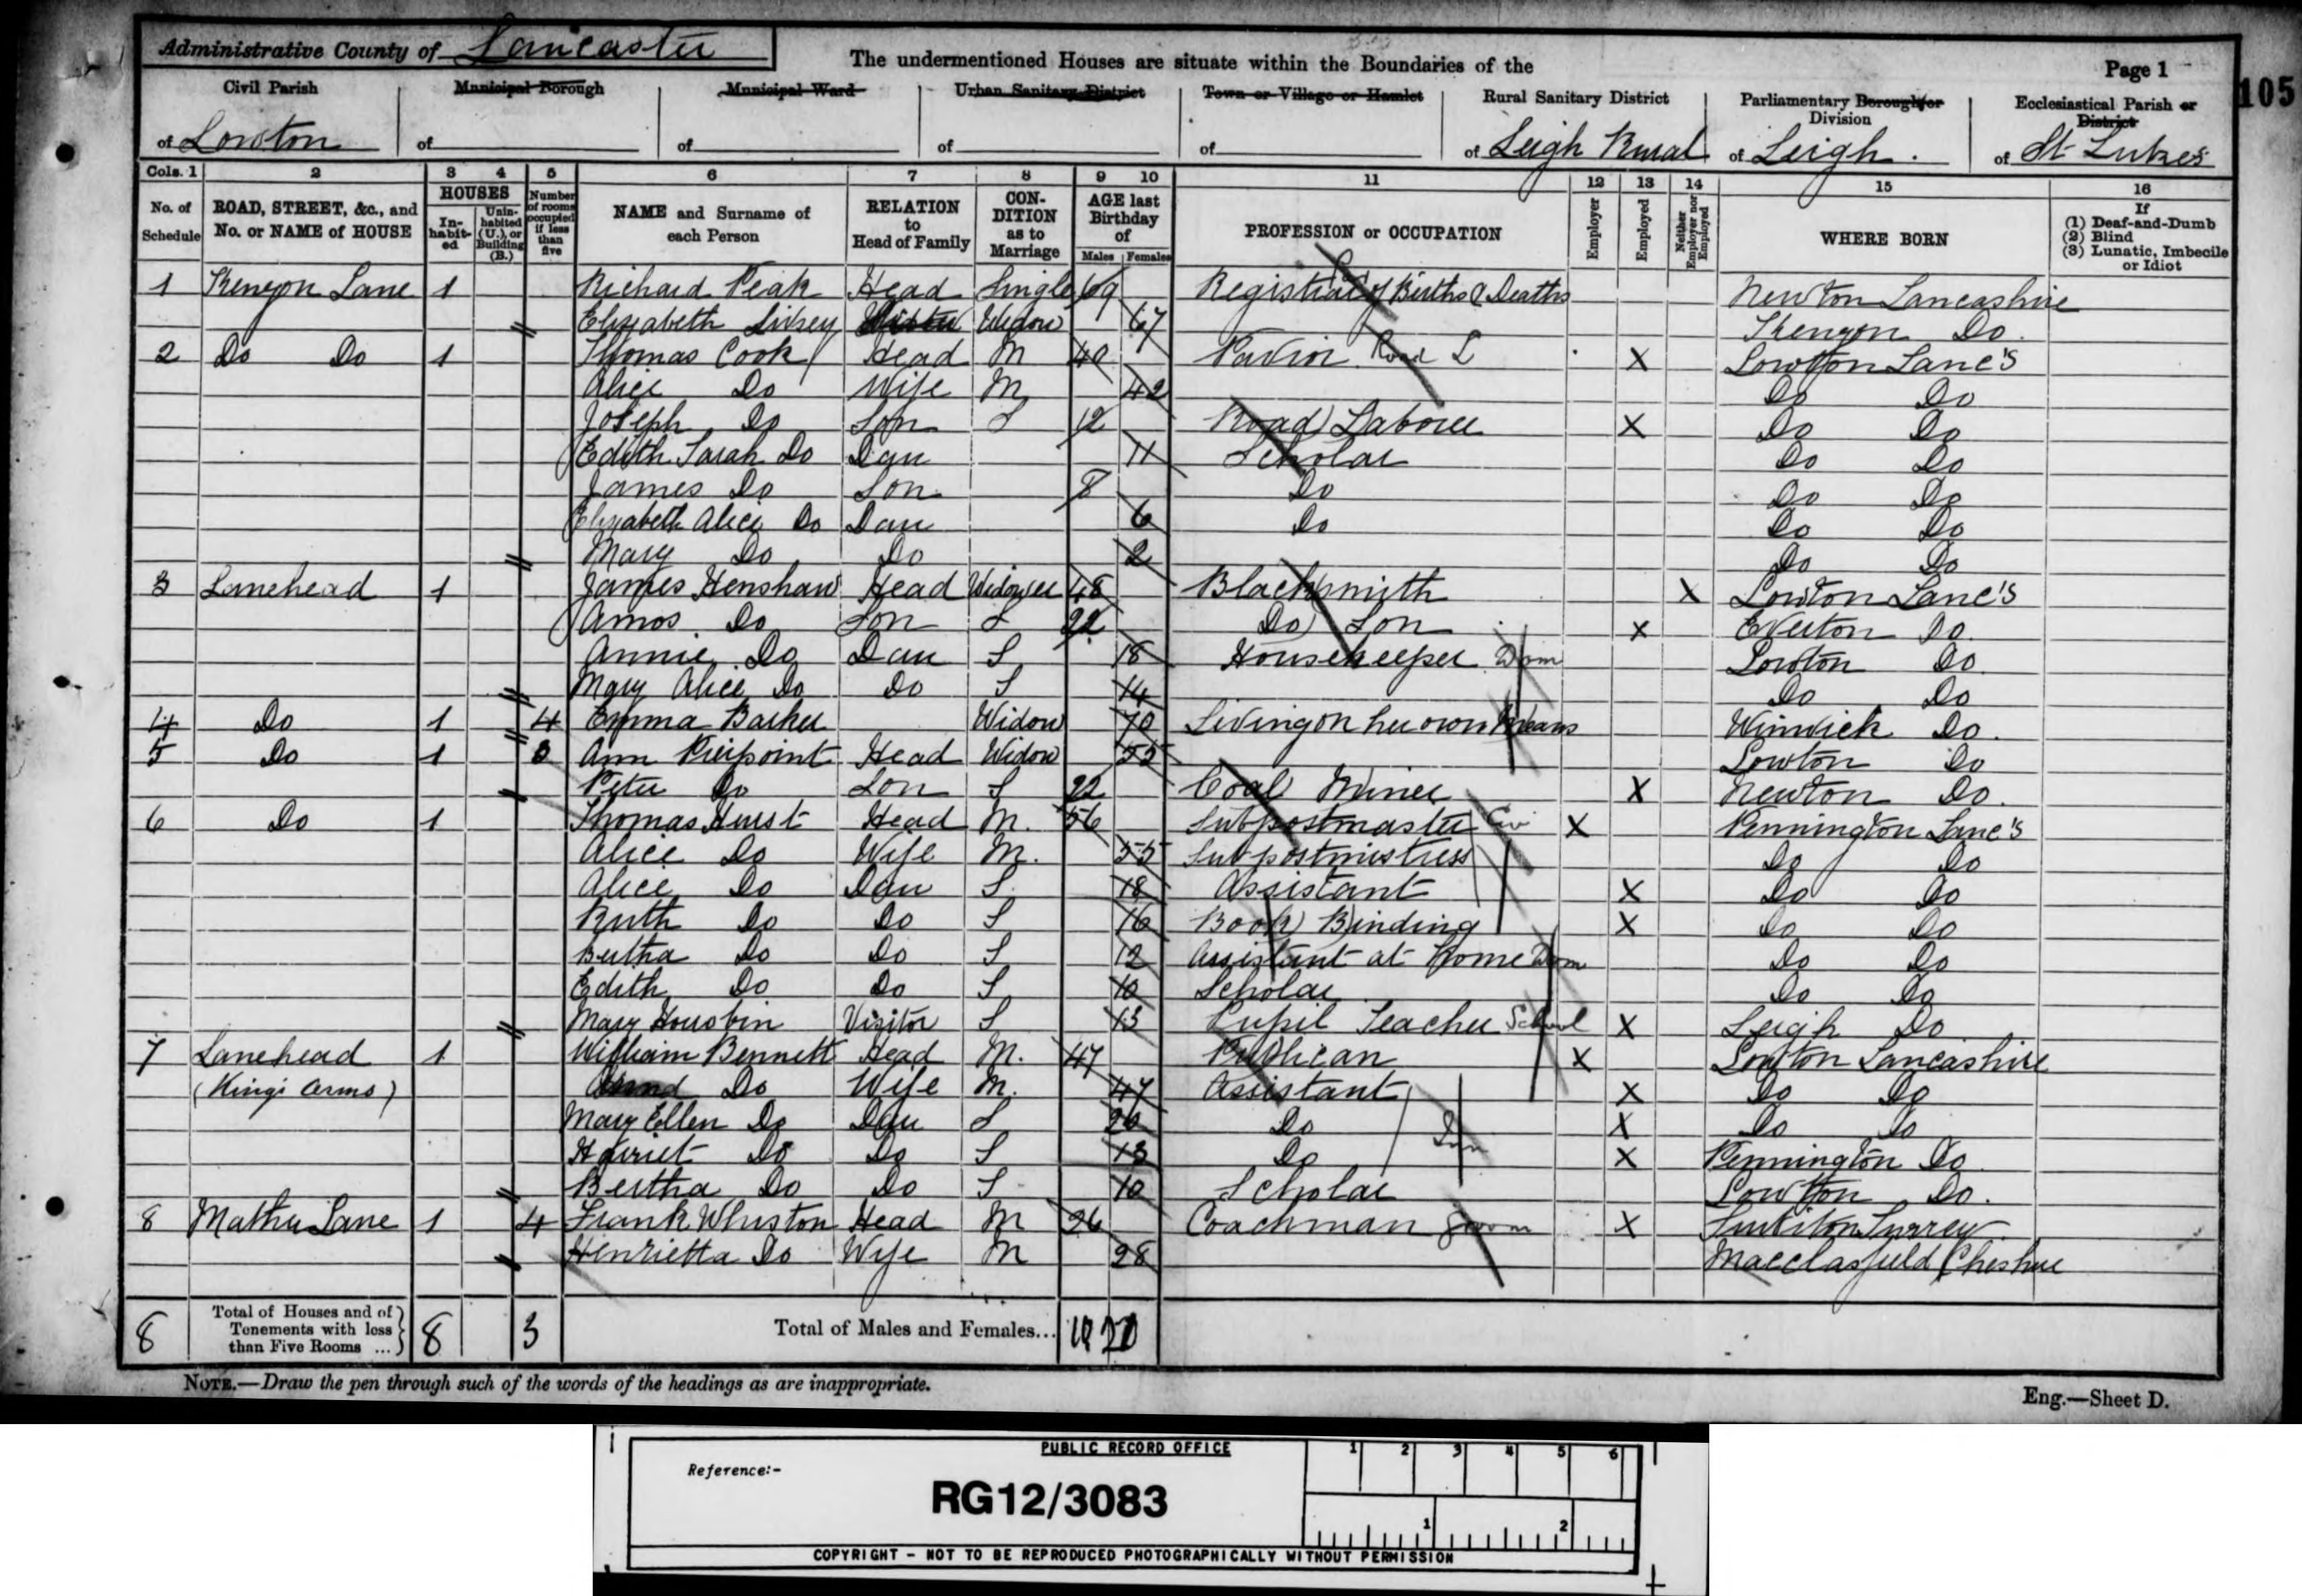 Administrative County of Lancaster
The undermentioned Houses are situate within the Boundaries of the
Page 1
105
Civil Parish Municipal Borough Municipal Ward Urban Sanitary District Town or Village or Hamlet Rural Sanitary District Parliamentary Borough or Division Ecclesiastical Parish or District
of Lowton of of of of of Leigh Rural of Leigh . of St Lukes
Cols. 1 2 3 4 5 6 7 8 9 10 11 12 13 14 15 16
No. of Schedule ROAD, STREET, &c., and No. or NAME of HOUSE HOUSES Inhabited Uninhabited (U.), or Building (B.) Number of rooms occupied if less than five NAME and Surname of each Person RELATION to Head of Family CONDITION as to Marriage AGE last Birthday of Males Females PROFESSION or OCCUPATION Employer Employed Neither Employer nor Employed WHERE BORN If (1) Deaf-and-Dumb (2) Blind (3) Lunatic, Imbecile or Idiot
1 Kenyon Lane 1 Richard Peak Head Single 69 Registrar of Births & Deaths Newton Lancashire
Elizabeth Widow 67 Kenyon Do.
2 Do Do 1 Thomas Cook Head M 40 Pavior Road L X Lowton Lanc's
Alice Do Wife M 42 Do Do
Joseph Do Son S 12 Road Laborer X Do Do
Edith Sarah Do Dau 11 Scholar Do Do
James Do Son 8 Do Do Do
Elizabeth Alice Do Dau 6 Do Do Do
Mary Do Do 2 Do Do
3 Lanehead 1 James Henshaw Head Widower 48 Blacksmith X Lowton Lanc's
Amos Do Son S 22 Do Son X Everton Do.
Annie Do Dau S 18 Housekeeper Dom Lowton Do
Mary Alice Do Do S 14 Do Do
4 Do 1 4 Emma Barker Widow 70 Living on her own Means Winwick Do.
5 Do 1 3 Ann Pierpoint Head Widow 55 Lowton Do
Peter Do Son S 22 Coal Miner X Newton Do.
6 Do 1 Thomas Hurst Head M. 56 Subpostmaster X Pennington Lanc's
Alice Do Wife M. 55 Subpostmistress Do Do
Alice Do Dau S. 18 Assistant X Do Do
Ruth Do Do S 16 Book Binding X Do Do
Bertha Do Do S 12 Assistant at Home Dom Do Do
Edith Do Do S 10 Scholar Do Do
Mary Visitor S Pupil Teacher School X Leigh Do
7 Lanehead 1 William Bennett Head M. 47 Publican X Lowton Lancashire
(Kings Arms) Do Wife M. 47 Assistant X Do Do
Mary Ellen Do Dau S 20 Do Inn X Do Do
Harriet Do Do S Do X Pennington Do
Bertha Do Do S 10 Scholar Lowton Do.
8 Mather Lane 1 4 Frank Head M 26 Coachman Groom X Surbiton Surrey
Henrietta Do Wife M 28 Macclasfield Cheshire
8 Total of Houses and of Tenements with less than Five Rooms ... 8 3 Total of Males and Females...
NOTE.—Draw the pen through such of the words of the headings as are inappropriate.
Eng.—Sheet D.
PUBLIC RECORD OFFICE 1 2 3 4 5 6
Reference:-
RG12/3083
1 2
COPYRIGHT - NOT TO BE REPRODUCED PHOTOGRAPHICALLY WITHOUT PERMISSION